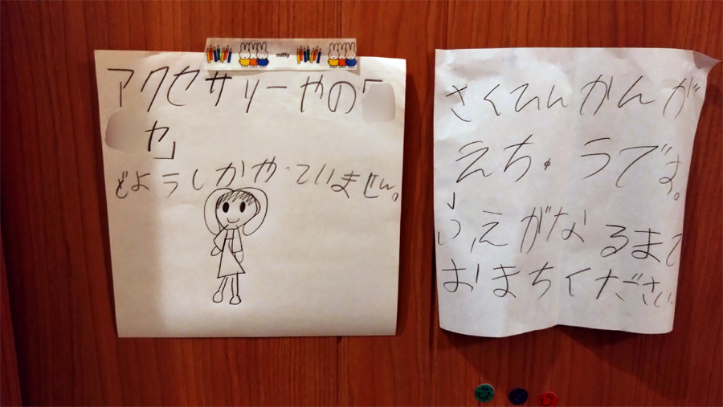 miffy
アクセサリーやの「
ヤ」
どようしかやっていません。
さくひんかんが
えちゅうです。
ふえがなるまで
おまちください